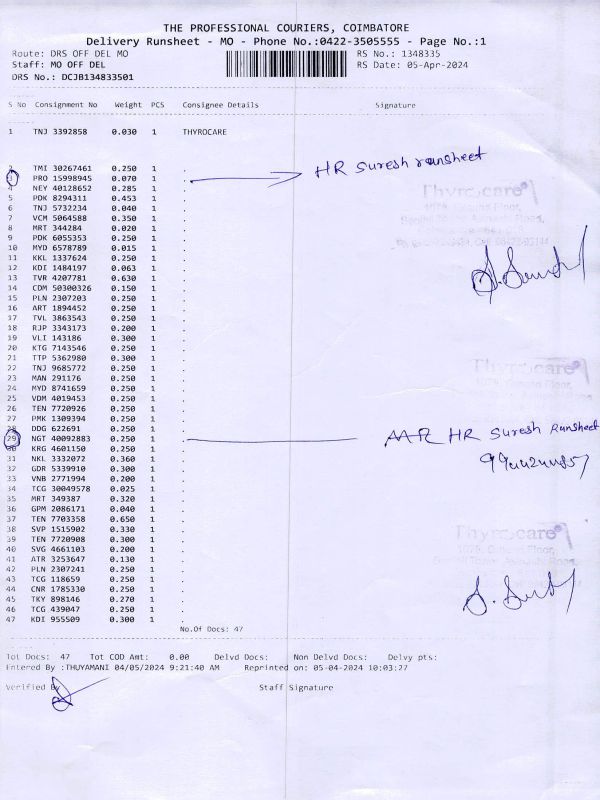 THE PROFESSIONAL COURIERS, COIMBATORE
Delivery Runsheet - MO - Phone No.:0422-3505555 - Page No.:1
Route: DRS OFF DEL MO RS No.: 1348335
Staff: MO OFF DEL RS Date: 05-Apr-2024
DRS No.: DCJB134833501
S No Consignment No Weight PCS Consignee Details Signature
1 TNJ 3392858 0.030 1 THYROCARE
2 TMI 30267461 0.250 1 .
HR Suresh runsheet
3 PRO 15998945 0.070 1 .
4 NEY 40128652 0.285 1 .
Thyrocare
5 PDK 8294311 0.453 1 .
6 TNJ 5732234 0.040 1 .
7 VCM 5064588 0.350 1 .
8 MRT 344284 0.020 1 .
9 PDK 6055353 0.250 1 .
10 MYD 6578789 0.015 1 .
11 KKL 1337624 0.250 1 .
12 KDI 1484197 0.063 1 .
13 TVR 4207781 0.630 1 .
14 CDM 50300326 0.150 1 .
15 PLN 2307203 0.250 1 .
16 ART 1894452 0.250 1 .
17 TVL 3863543 0.250 1 .
18 RJP 3343173 0.200 1 .
19 VLI 143186 0.300 1 .
20 KTG 7143546 0.250 1 .
21 TTP 5362980 0.300 1 .
22 TNJ 9685772 0.250 1 .
Thyrocare
23 MAN 291176 0.250 1 .
24 MYD 8741659 0.250 1 .
25 VDM 4019453 0.250 1 .
26 TEN 7720926 0.250 1 .
27 PMK 1309394 0.250 1 .
28 DDG 622691 0.250 1 .
29 NGT 40092883 0.250 1 .
HR Suresh Runsheet
30 KRG 4601150 0.250 1 .
31 NKL 3332072 0.360 1 .
32 GDR 5339910 0.300 1 .
33 VNB 2771994 0.200 1 .
34 TCG 30049578 0.025 1 .
35 MRT 349387 0.320 1 .
36 GPM 2086171 0.040 1 .
37 TEN 7703358 0.650 1 .
38 SVP 1515902 0.330 1 .
Thyrocare
39 TEN 7720908 0.300 1 .
40 SVG 4661103 0.200 1 .
41 ATR 3253647 0.130 1 .
42 PLN 2307241 0.250 1 .
43 TCG 118659 0.250 1 .
44 CNR 1785330 0.250 1 .
45 TKY 898146 0.270 1 .
46 TCG 439047 0.250 1 .
47 KDI 955509 0.300 1 .
No.Of Docs: 47
Tot Docs: 47 Tot COD Amt: 0.00 Delvd Docs: Non Delvd Docs: Delvy pts:
Entered By :THUYAMANI 04/05/2024 9:21:40 AM Reprinted on: 05-04-2024 10:03:27
Verified By Staff Signature